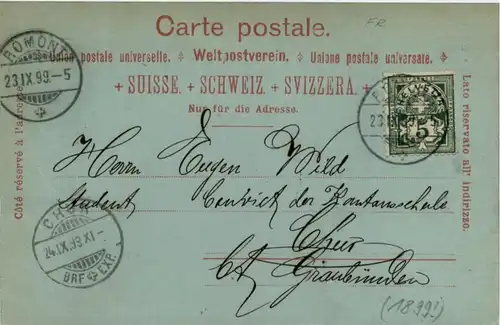 Carte postale.
FR
Union postale universelle. Weltpostverein. Unione postale universale.
+ SUISSE. + SCHWEIZ. + SVIZZERA. +
Nur für die Adresse.
Côté réservé à l'adresse.
Lato riservato all' indirizzo.
ROMONT
23.IX.99.-5
HELVETIA
5
23.IX.99.-5
Herrn Eugen Wild
Student, Convict der Kantonsschule
Chur
Ct. Graubünden
CHUR
24.IX.99.XI-
BRF. EXP.
(1899!)